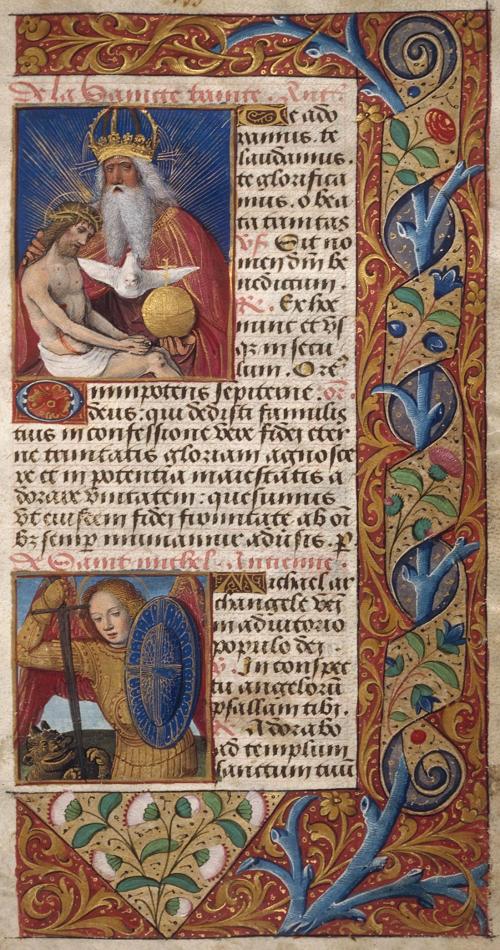 De la Saincte trinite. Ant.
Te ado
ramus. te
laudamus.
te glorifica
mus. o bea
ta trinitas
Vs. Sit no
men dni be
nedictum.
R. Ex hoc
nunc et vs
q3 in secu
lum. Ore
Omnipotens sepiterne. or.
deus: qui dedisti famulis
tuis in confessione vere fidei eter
ne trinitatis gloriam agnosce
re et in potentia maiestatis a
dorare vnitatem: quesumus
vt eiusdem fidei firmitate ab oi
b3 semp muniamur adusis. P
De Saint michel. Antienne.
Michael ar
changele veni
in adiutorio
populo dei
In conspec
tu angeloru
psallam tibi.
R Adorabo
ad templum
sanctum tuu